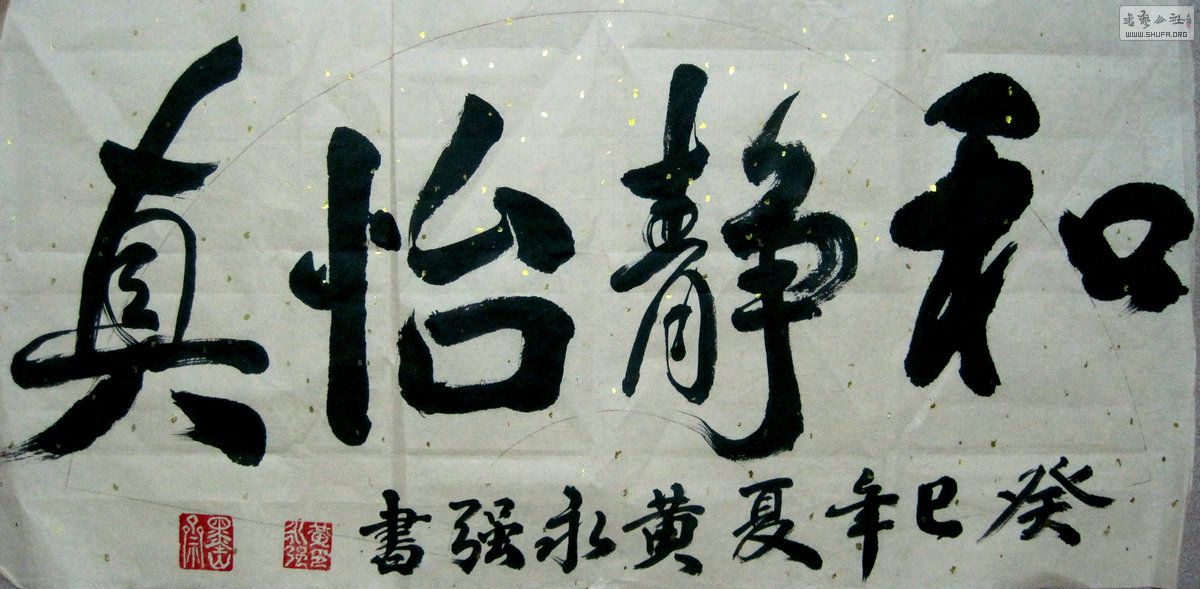 和静怡真
癸巳年夏黄永强书
黄永强
墨
书艺公社
WWW.SHUFA.ORG